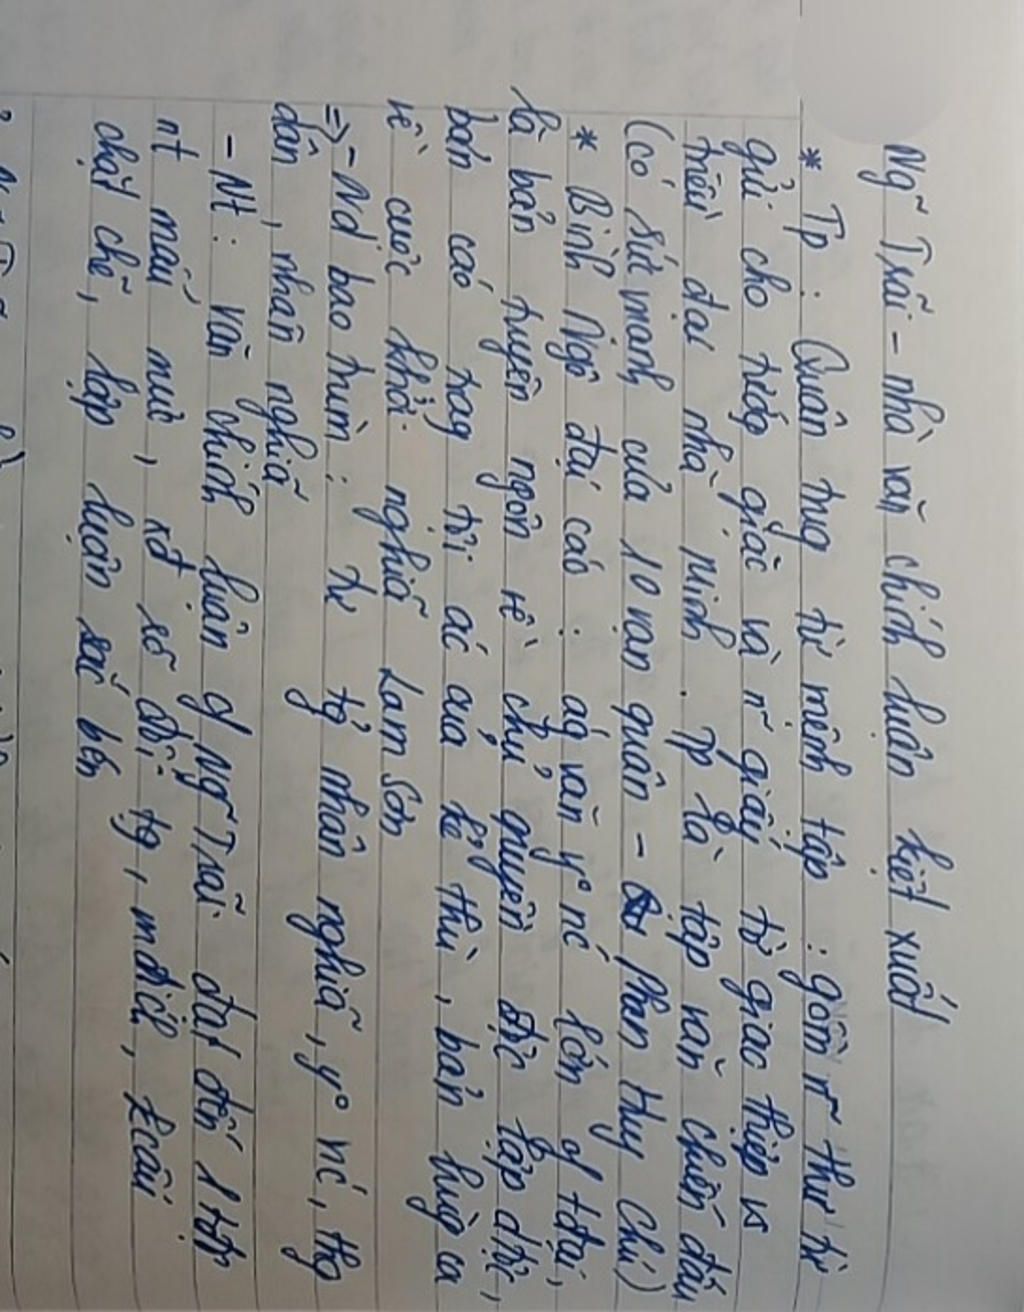 Ng~ Trãi - nhà văn chính luận kiệt xuất
* Tp : Quân trug từ mệnh tập : gồm n~ thư từ
gửi cho tướg giặc và n~ giấy tờ giao thiệp vs
triều đại nhà Minh . Tp là tập văn chiến đấu
(có sức mạnh của 10 vạn quân - Phan Huy Chú)
* Bình Ngô đại cáo : ág văn y° nc lớn of tđại,
là bản tuyên ngôn về chủ quyền độc lập dtộc,
bản cáo trạg tội ác của kẻ thù, bản hùng ca
về cuộc khởi nghĩa Lam Sơn
=> - Nd bao trùm : tư tg nhân nghĩa, y° nc, thg
dân, nhân nghĩa
- Nt : văn chính luận of Ng~ Trãi đạt đến 1 tđộ
nt mẫu mực, xđ rõ đối tg, mđích, kcấu
chặt chẽ, lập luận sắc bén